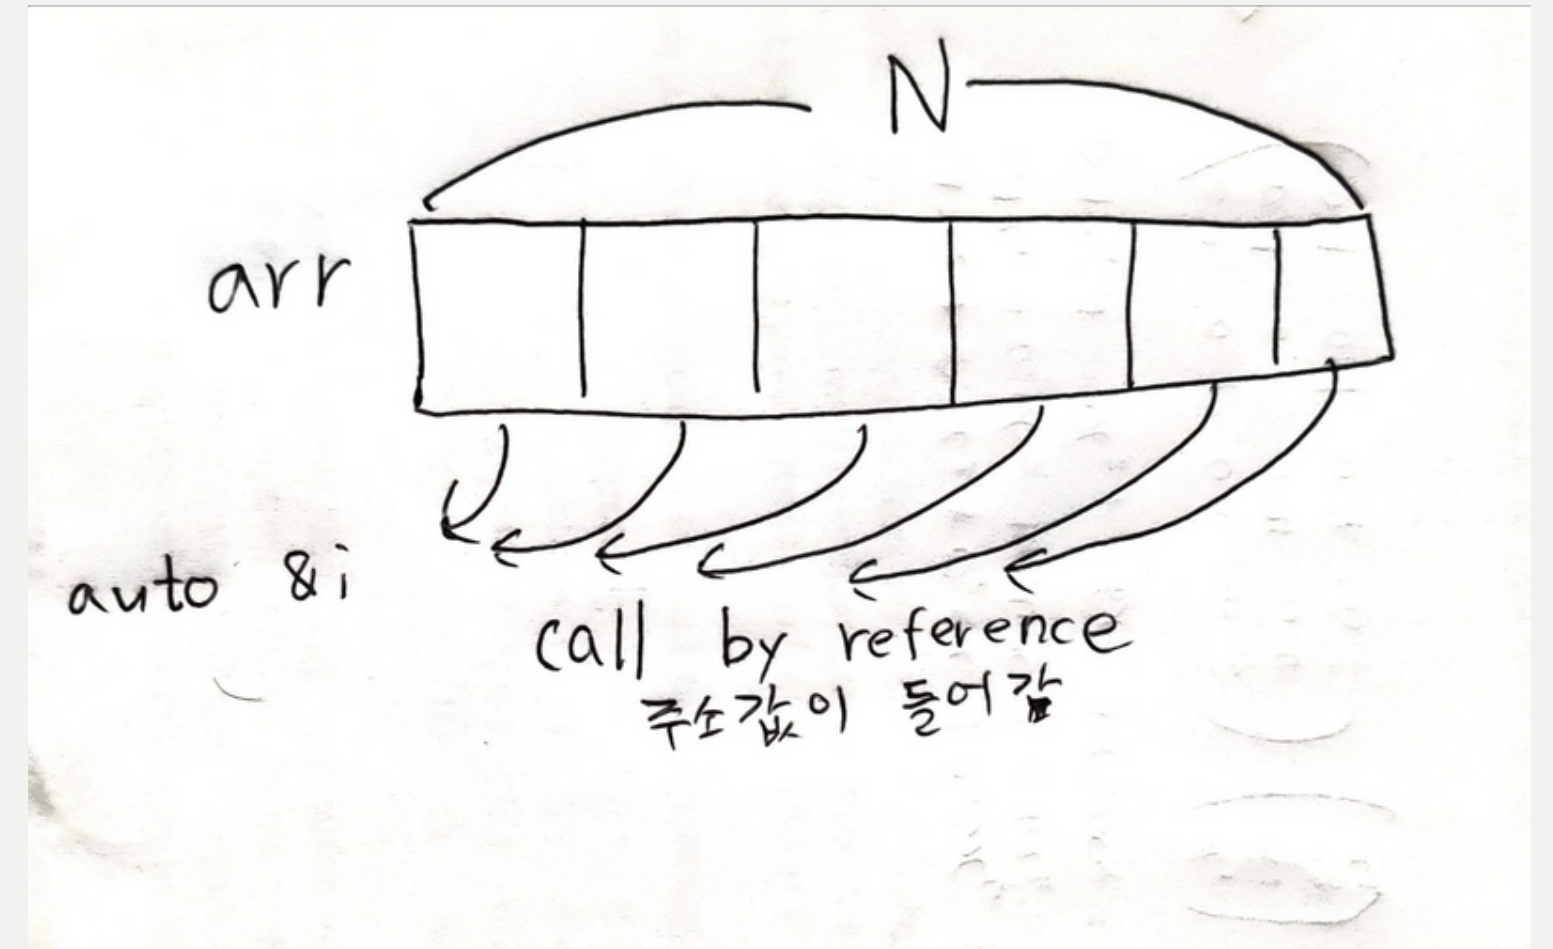 N
arr
auto &i
call by reference
주소값이 들어감